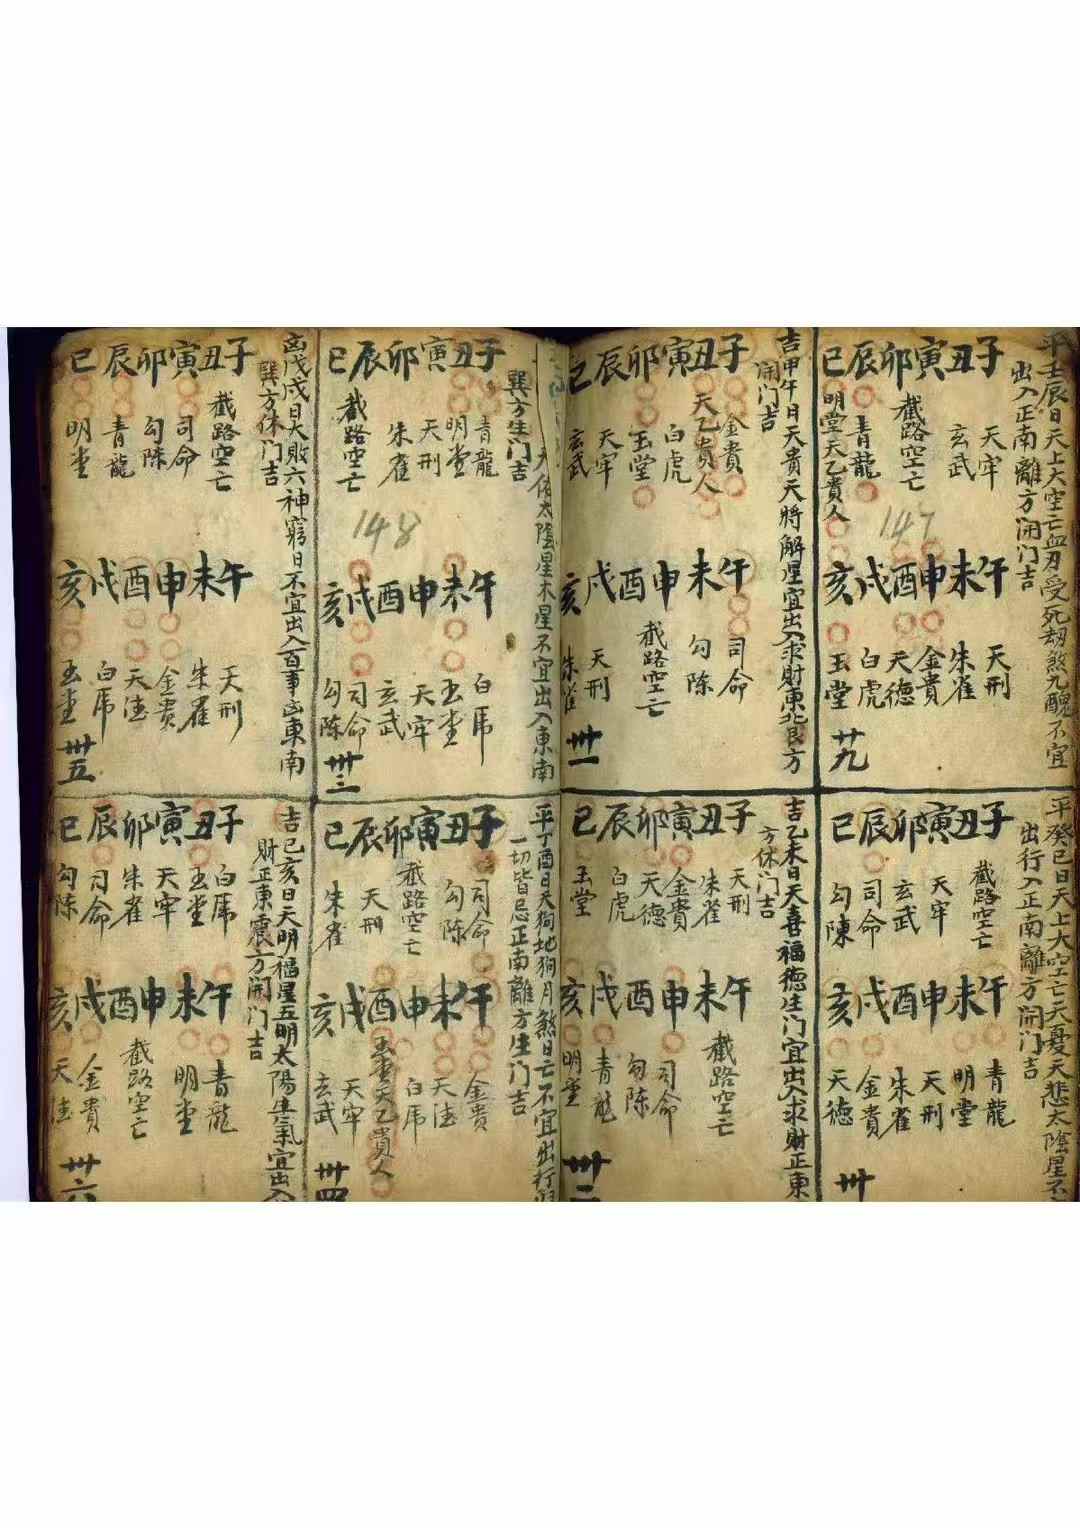 平壬辰日天上大空亡血刃受死劫煞九醜不宜
出入正南離方開门吉
子丑寅卯辰巳
天牢
玄武
截路空亡
青龍
明堂天乙貴人
147
午未申酉戌亥
天刑
朱雀
金貴
天德
白虎
玉堂
廿九
平癸巳日天上大空亡天憂天悲太陰星不
出行入正南離方開门吉
子丑寅卯辰巳
截路空亡
天牢
玄武
司命
勾陳
午未申酉戌亥
青龍
明堂
天刑
朱雀
金貴
天德
卅
吉甲午日天貴天將解星宜出入求財東北艮方
開门吉
子丑寅卯辰巳
金貴
天乙貴人
白虎
玉堂
天牢
玄武
午未申酉戌亥
司命
勾陳
截路空亡
天刑
朱雀
卅一
吉乙未日天喜福德生门宜出入求財正東
方休门吉
子丑寅卯辰巳
天刑
朱雀
金貴
天德
白虎
玉堂
午未申酉戌亥
截路空亡
司命
勾陳
青龍
明堂
卅二
太陰星木星不宜出入東南
巽方生门吉
子丑寅卯辰巳
青龍
明堂
天刑
朱雀
截路空亡
148
午未申酉戌亥
白虎
玉堂
天牢
玄武
司命
勾陳
卅三
平丁酉日天狗地狗月煞日亡不宜出行
一切皆忌正南離方生门吉
子丑寅卯辰巳
司命
勾陳
截路空亡
天刑
朱雀
午未申酉戌亥
金貴
天德
白虎
玉堂天乙貴人
天牢
玄武
卅四
凶戊戌日大敗六神窮日不宜出入百事凶東南
巽方休门吉
子丑寅卯辰巳
截路空亡
司命
勾陳
青龍
明堂
午未申酉戌亥
天刑
朱雀
金貴
天德
白虎
玉堂
卅五
吉己亥日天明福星五明太陽生氣宜出入
財正東震方開门吉
子丑寅卯辰巳
白虎
玉堂
天牢
朱雀
司命
勾陳
午未申酉戌亥
青龍
明堂
截路空亡
金貴
天德
卅六